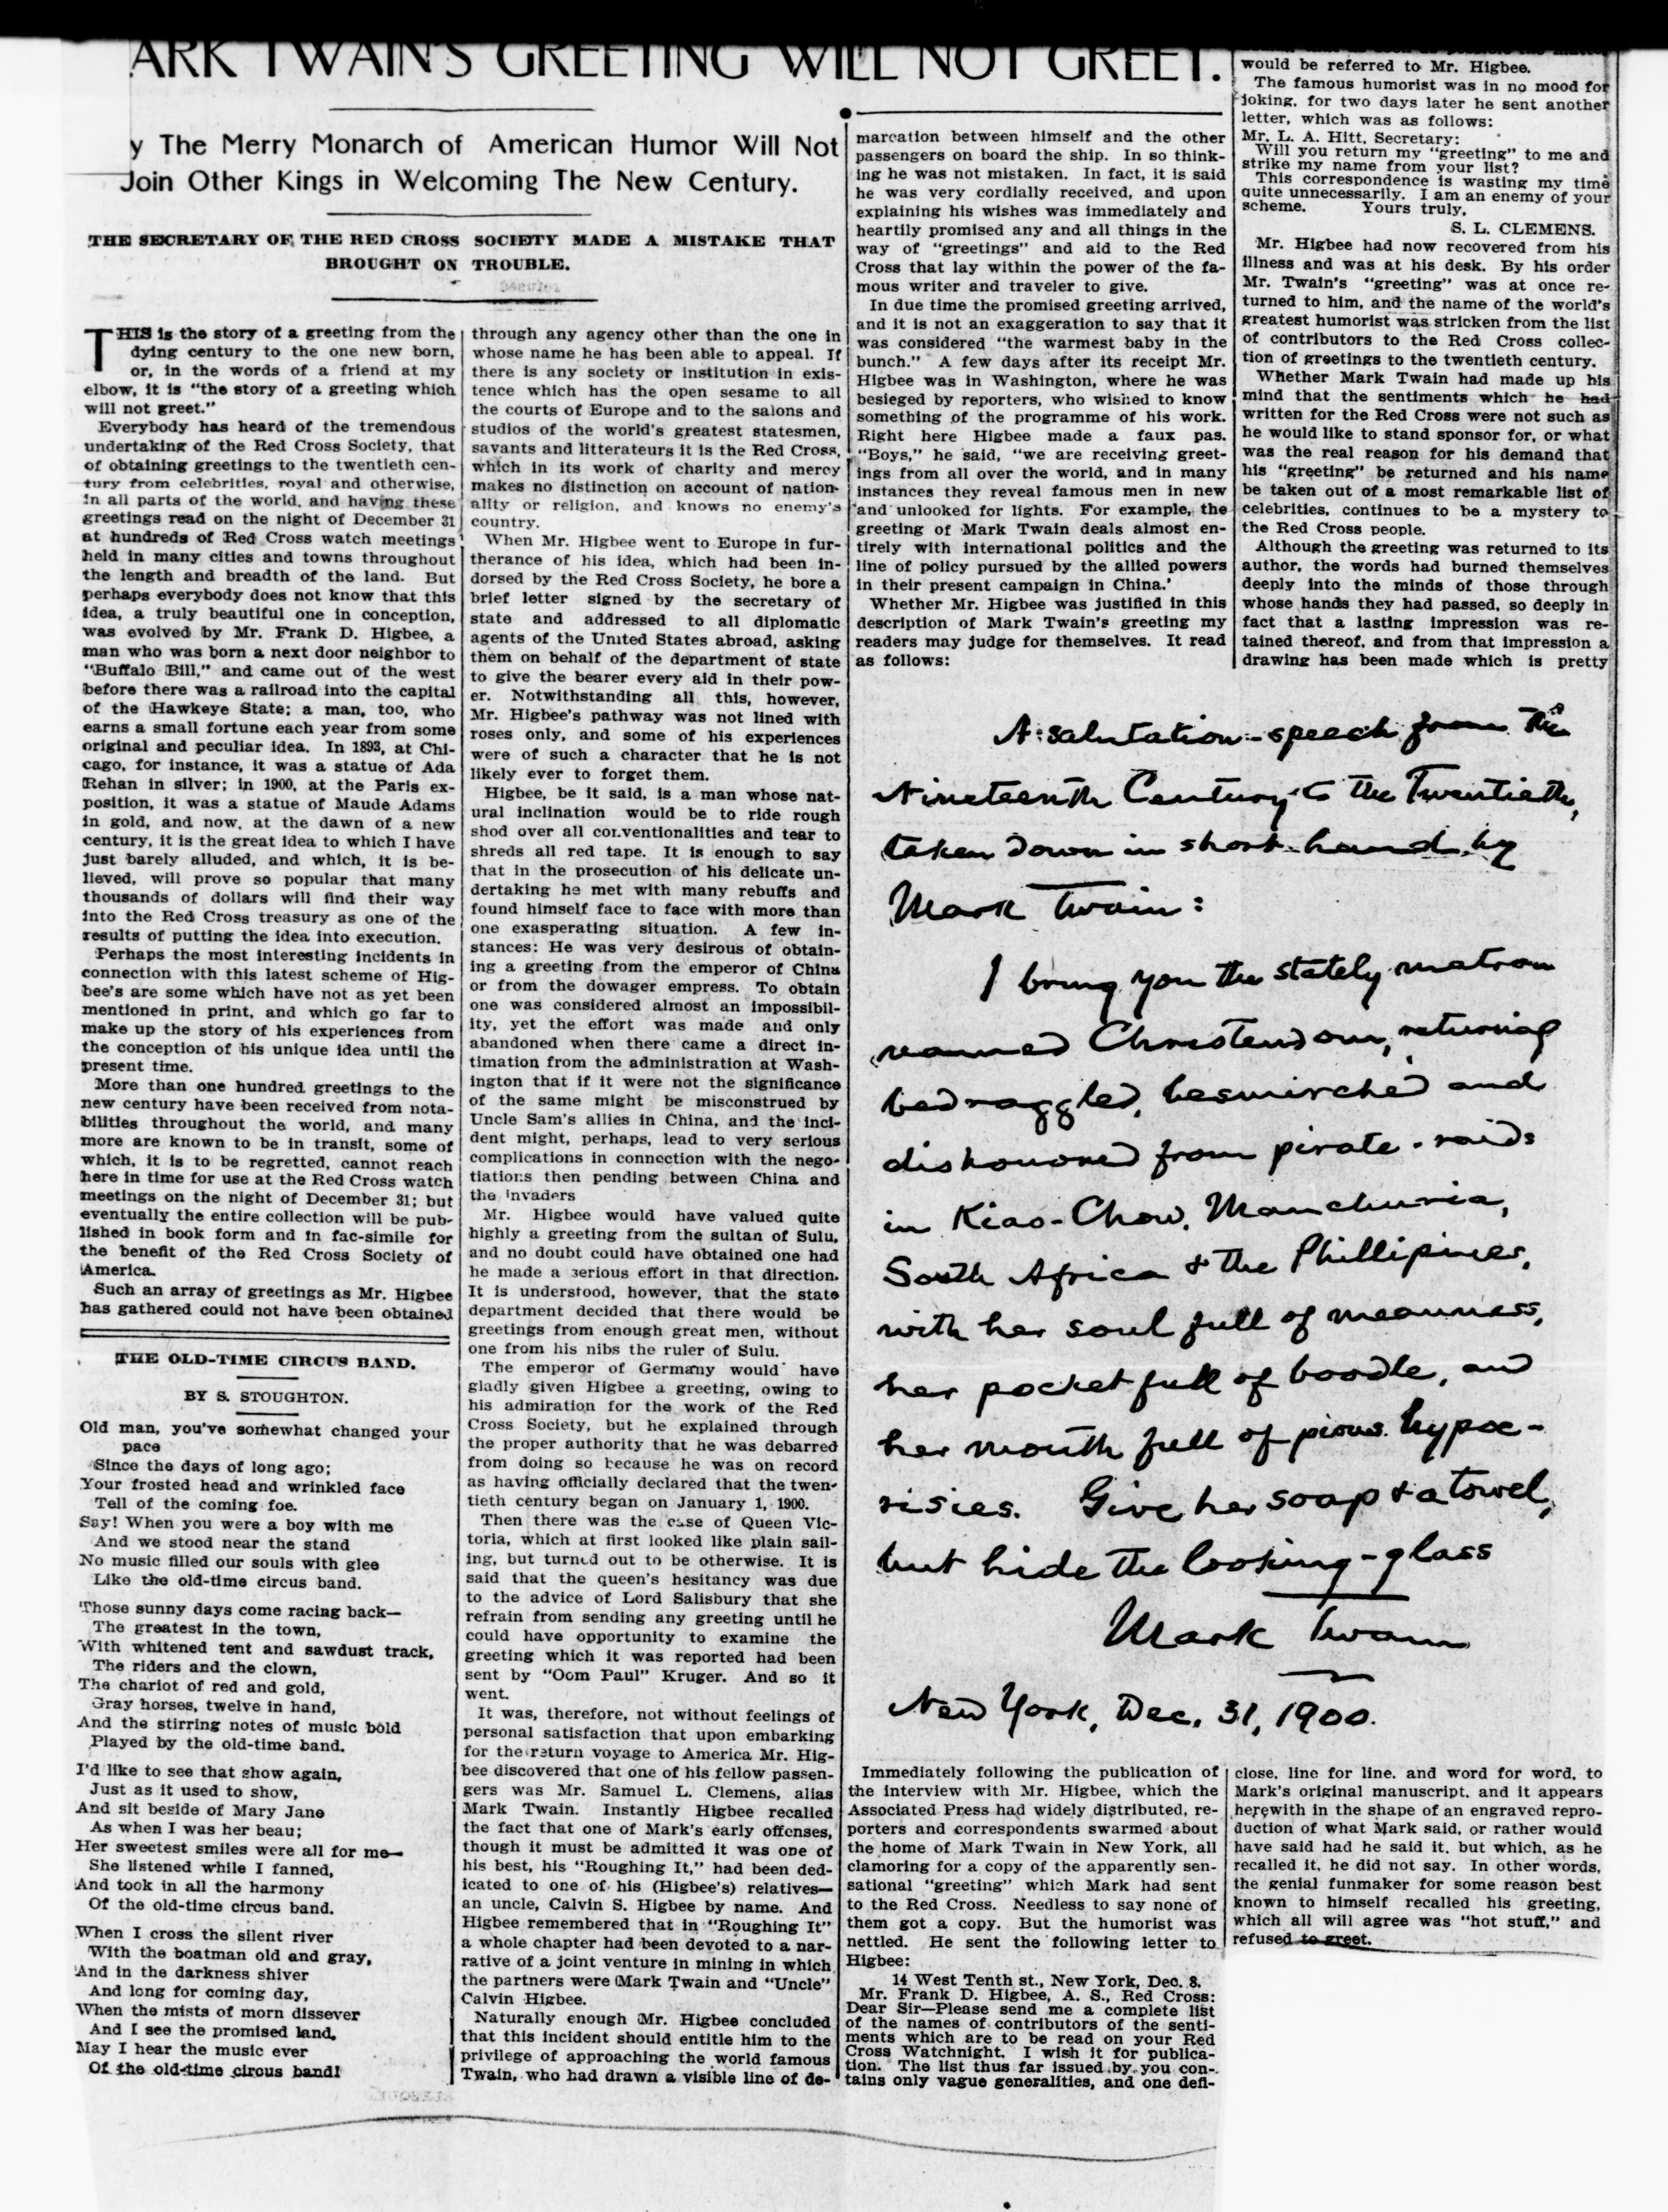 ARK TWAIN'S GREETING WILL NOT GREET.
y The Merry Monarch of American Humor Will Not
Join Other Kings in Welcoming The New Century.
THE SECRETARY OF THE RED CROSS SOCIETY MADE A MISTAKE THAT
BROUGHT ON TROUBLE.
THIS is the story of a greeting from the
dying century to the one new born,
or, in the words of a friend at my
elbow, it is "the story of a greeting which
will not greet."
Everybody has heard of the tremendous
undertaking of the Red Cross Society, that
of obtaining greetings to the twentieth cen-
tury from celebrities, royal and otherwise,
in all parts of the world, and having these
greetings read on the night of December 31
at hundreds of Red Cross watch meetings
held in many cities and towns throughout
the length and breadth of the land. But
perhaps everybody does not know that this
idea, a truly beautiful one in conception,
was evolved by Mr. Frank D. Higbee, a
man who was born a next door neighbor to
"Buffalo Bill," and came out of the west
before there was a railroad into the capital
of the Hawkeye State; a man, too, who
earns a small fortune each year from some
original and peculiar idea. In 1893, at Chi-
cago, for instance, it was a statue of Ada
Rehan in silver; in 1900, at the Paris ex-
position, it was a statue of Maude Adams
in gold, and now, at the dawn of a new
century, it is the great idea to which I have
just barely alluded, and which, it is be-
lieved, will prove so popular that many
thousands of dollars will find their way
into the Red Cross treasury as one of the
results of putting the idea into execution.
Perhaps the most interesting incidents in
connection with this latest scheme of Hig-
bee's are some which have not as yet been
mentioned in print, and which go far to
make up the story of his experiences from
the conception of his unique idea until the
present time.
More than one hundred greetings to the
new century have been received from nota-
bilities throughout the world, and many
more are known to be in transit, some of
which, it is to be regretted, cannot reach
here in time for use at the Red Cross watch
meetings on the night of December 31; but
eventually the entire collection will be pub-
lished in book form and in fac-simile for
the benefit of the Red Cross Society of
America.
Such an array of greetings as Mr. Higbee
has gathered could not have been obtained
THE OLD-TIME CIRCUS BAND.
BY S. STOUGHTON.
Old man, you've somewhat changed your
pace
Since the days of long ago;
Your frosted head and wrinkled face
Tell of the coming foe.
Say! When you were a boy with me
And we stood near the stand
No music filled our souls with glee
Like the old-time circus band.
Those sunny days come racing back—
The greatest in the town,
With whitened tent and sawdust track,
The riders and the clown,
The chariot of red and gold,
Gray horses, twelve in hand,
And the stirring notes of music bold
Played by the old-time band.
I'd like to see that show again,
Just as it used to show,
And sit beside of Mary Jane
As when I was her beau;
Her sweetest smiles were all for me—
She listened while I fanned,
And took in all the harmony
Of the old-time circus band.
When I cross the silent river
With the boatman old and gray,
And in the darkness shiver
And long for coming day,
When the mists of morn dissever
And I see the promised land,
May I hear the music ever
Of the old-time circus band!
through any agency other than the one in
whose name he has been able to appeal. If
there is any society or institution in exis-
tence which has the open sesame to all
the courts of Europe and to the salons and
studios of the world's greatest statesmen,
savants and litterateurs it is the Red Cross,
which in its work of charity and mercy
makes no distinction on account of nation-
ality or religion, and knows no enemy's
country.
When Mr. Higbee went to Europe in fur-
therance of his idea, which had been in-
dorsed by the Red Cross Society, he bore a
brief letter signed by the secretary of
state and addressed to all diplomatic
agents of the United States abroad, asking
them on behalf of the department of state
to give the bearer every aid in their pow-
er. Notwithstanding all this, however,
Mr. Higbee's pathway was not lined with
roses only, and some of his experiences
were of such a character that he is not
likely ever to forget them.
Higbee, be it said, is a man whose nat-
ural inclination would be to ride rough
shod over all conventionalities and tear to
shreds all red tape. It is enough to say
that in the prosecution of his delicate un-
dertaking he met with many rebuffs and
found himself face to face with more than
one exasperating situation. A few in-
stances: He was very desirous of obtain-
ing a greeting from the emperor of China
or from the dowager empress. To obtain
one was considered almost an impossibil-
ity, yet the effort was made and only
abandoned when there came a direct in-
timation from the administration at Wash-
ington that if it were not the significance
of the same might be misconstrued by
Uncle Sam's allies in China, and the inci-
dent might, perhaps, lead to very serious
complications in connection with the nego-
tiations then pending between China and
the invaders
Mr. Higbee would have valued quite
highly a greeting from the sultan of Sulu,
and no doubt could have obtained one had
he made a serious effort in that direction.
It is understood, however, that the state
department decided that there would be
greetings from enough great men, without
one from his nibs the ruler of Sulu.
The emperor of Germany would have
gladly given Higbee a greeting, owing to
his admiration for the work of the Red
Cross Society, but he explained through
the proper authority that he was debarred
from doing so because he was on record
as having officially declared that the twen-
tieth century began on January 1, 1900.
Then there was the case of Queen Vic-
toria, which at first looked like plain sail-
ing, but turned out to be otherwise. It is
said that the queen's hesitancy was due
to the advice of Lord Salisbury that she
refrain from sending any greeting until he
could have opportunity to examine the
greeting which it was reported had been
sent by "Oom Paul" Kruger. And so it
went.
It was, therefore, not without feelings of
personal satisfaction that upon embarking
for the return voyage to America Mr. Hig-
bee discovered that one of his fellow passen-
gers was Mr. Samuel L. Clemens, alias
Mark Twain. Instantly Higbee recalled
the fact that one of Mark's early offenses,
though it must be admitted it was one of
his best, his "Roughing It," had been ded-
icated to one of his (Higbee's) relatives—
an uncle, Calvin S. Higbee by name. And
Higbee remembered that in "Roughing It"
a whole chapter had been devoted to a nar-
rative of a joint venture in mining in which
the partners were Mark Twain and "Uncle"
Calvin Higbee.
Naturally enough Mr. Higbee concluded
that this incident should entitle him to the
privilege of approaching the world famous
Twain, who had drawn a visible line of de-
marcation between himself and the other
passengers on board the ship. In so think-
ing he was not mistaken. In fact, it is said
he was very cordially received, and upon
explaining his wishes was immediately and
heartily promised any and all things in the
way of "greetings" and aid to the Red
Cross that lay within the power of the fa-
mous writer and traveler to give.
In due time the promised greeting arrived,
and it is not an exaggeration to say that it
was considered "the warmest baby in the
bunch." A few days after its receipt Mr.
Higbee was in Washington, where he was
besieged by reporters, who wished to know
something of the programme of his work.
Right here Higbee made a faux pas.
"Boys," he said, "we are receiving greet-
ings from all over the world, and in many
instances they reveal famous men in new
and unlooked for lights. For example, the
greeting of Mark Twain deals almost en-
tirely with international politics and the
line of policy pursued by the allied powers
in their present campaign in China.'
Whether Mr. Higbee was justified in this
description of Mark Twain's greeting my
readers may judge for themselves. It read
as follows:
A salutation-speech from the
Nineteenth Century to the Twentieth,
taken down in short-hand by
Mark Twain:
I bring you the stately matron
named Christendom, returning
bedraggled, besmirched and
dishonored from pirate-raids
in Kiao-Chow, Manchuria,
South Africa & the Phillipines,
with her soul full of meanness,
her pocket full of boodle, and
her mouth full of pious hypoc-
risies. Give her soap & a towel,
but hide the looking-glass
Mark Twain
New York, Dec. 31, 1900.
Immediately following the publication of
the interview with Mr. Higbee, which the
Associated Press had widely distributed, re-
porters and correspondents swarmed about
the home of Mark Twain in New York, all
clamoring for a copy of the apparently sen-
sational "greeting" which Mark had sent
to the Red Cross. Needless to say none of
them got a copy. But the humorist was
nettled. He sent the following letter to
Higbee:
14 West Tenth st., New York, Dec. 8.
Mr. Frank D. Higbee, A. S., Red Cross:
Dear Sir—Please send me a complete list
of the names of contributors of the senti-
ments which are to be read on your Red
Cross Watchnight. I wish it for publica-
tion. The list thus far issued by you con-
tains only vague generalities, and one defi-
would be referred to Mr. Higbee.
The famous humorist was in no mood for
joking, for two days later he sent another
letter, which was as follows:
Mr. L. A. Hitt, Secretary:
Will you return my "greeting" to me and
strike my name from your list?
This correspondence is wasting my time
quite unnecessarily. I am an enemy of your
scheme. Yours truly,
S. L. CLEMENS.
Mr. Higbee had now recovered from his
illness and was at his desk. By his order
Mr. Twain's "greeting" was at once re-
turned to him, and the name of the world's
greatest humorist was stricken from the list
of contributors to the Red Cross collec-
tion of greetings to the twentieth century.
Whether Mark Twain had made up his
mind that the sentiments which he had
written for the Red Cross were not such as
he would like to stand sponsor for, or what
was the real reason for his demand that
his "greeting" be returned and his name
be taken out of a most remarkable list of
celebrities, continues to be a mystery to
the Red Cross people.
Although the greeting was returned to its
author, the words had burned themselves
deeply into the minds of those through
whose hands they had passed, so deeply in
fact that a lasting impression was re-
tained thereof, and from that impression a
drawing has been made which is pretty
close, line for line, and word for word, to
Mark's original manuscript, and it appears
herewith in the shape of an engraved repro-
duction of what Mark said, or rather would
have said had he said it, but which, as he
recalled it, he did not say. In other words,
the genial funmaker for some reason best
known to himself recalled his greeting,
which all will agree was "hot stuff," and
refused to greet.